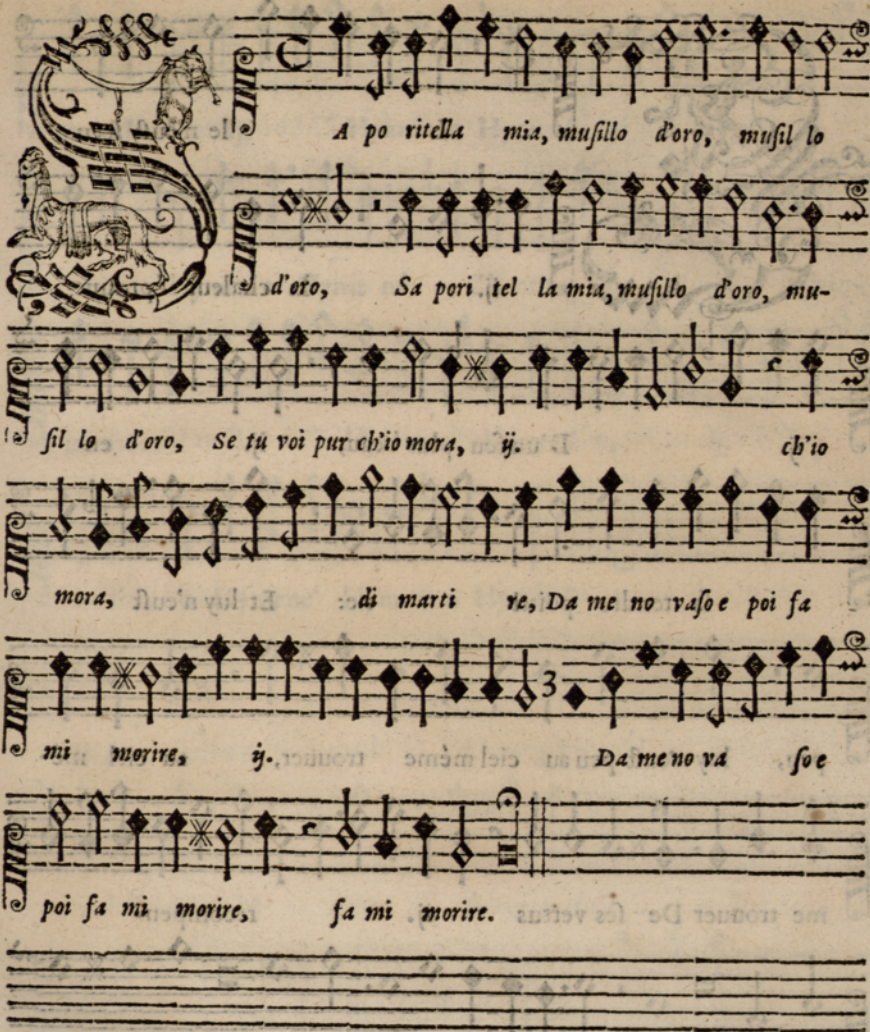 S
A po ritella mia, muſillo d'oro, muſil lo
d'oro, Sa pori tel la mia, muſillo d'oro, mu-
ſil lo d'oro, Se tu voi pur ch'io mora, ij. ch'io
mora, di marti re, Da me no vaſo e poi fa
mi morire, ij. 3 Da me no va ſo e
poi fa mi morire, fa mi morire.